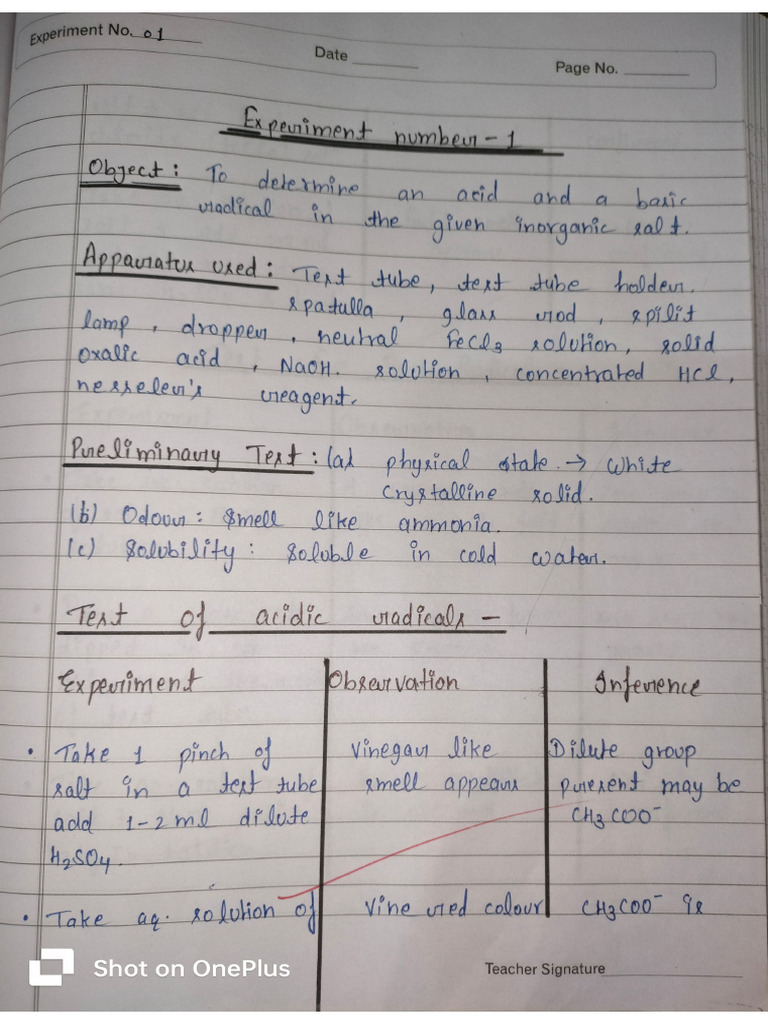 Experiment No. 01
Date
Page No.
Experiment number - 1
Object : To determine an acid and a basic
radical in the given inorganic salt.
Apparatus used : Test tube, test tube holder.
spatulla , glass rod , spilit
lamp , dropper , neutral FeCl3 solution, solid
oxalic acid , NaOH. solution , concentrated HCl,
nesseler's reagent.
Preliminary Test : (a) physical state → White
Crystalline solid.
(b) Odour : Smell like ammonia.
(c) Solubility : Soluble in cold water.
Test of acidic radicals -
Experiment Observation Inference
• Take 1 pinch of Vinegar like Dilute group
salt in a test tube smell appears present may be
add 1-2 ml dilute CH3COO⁻
H2SO4.
• Take aq. solution of Vine red colour CH3COO⁻ is
Shot on OnePlus
Teacher Signature